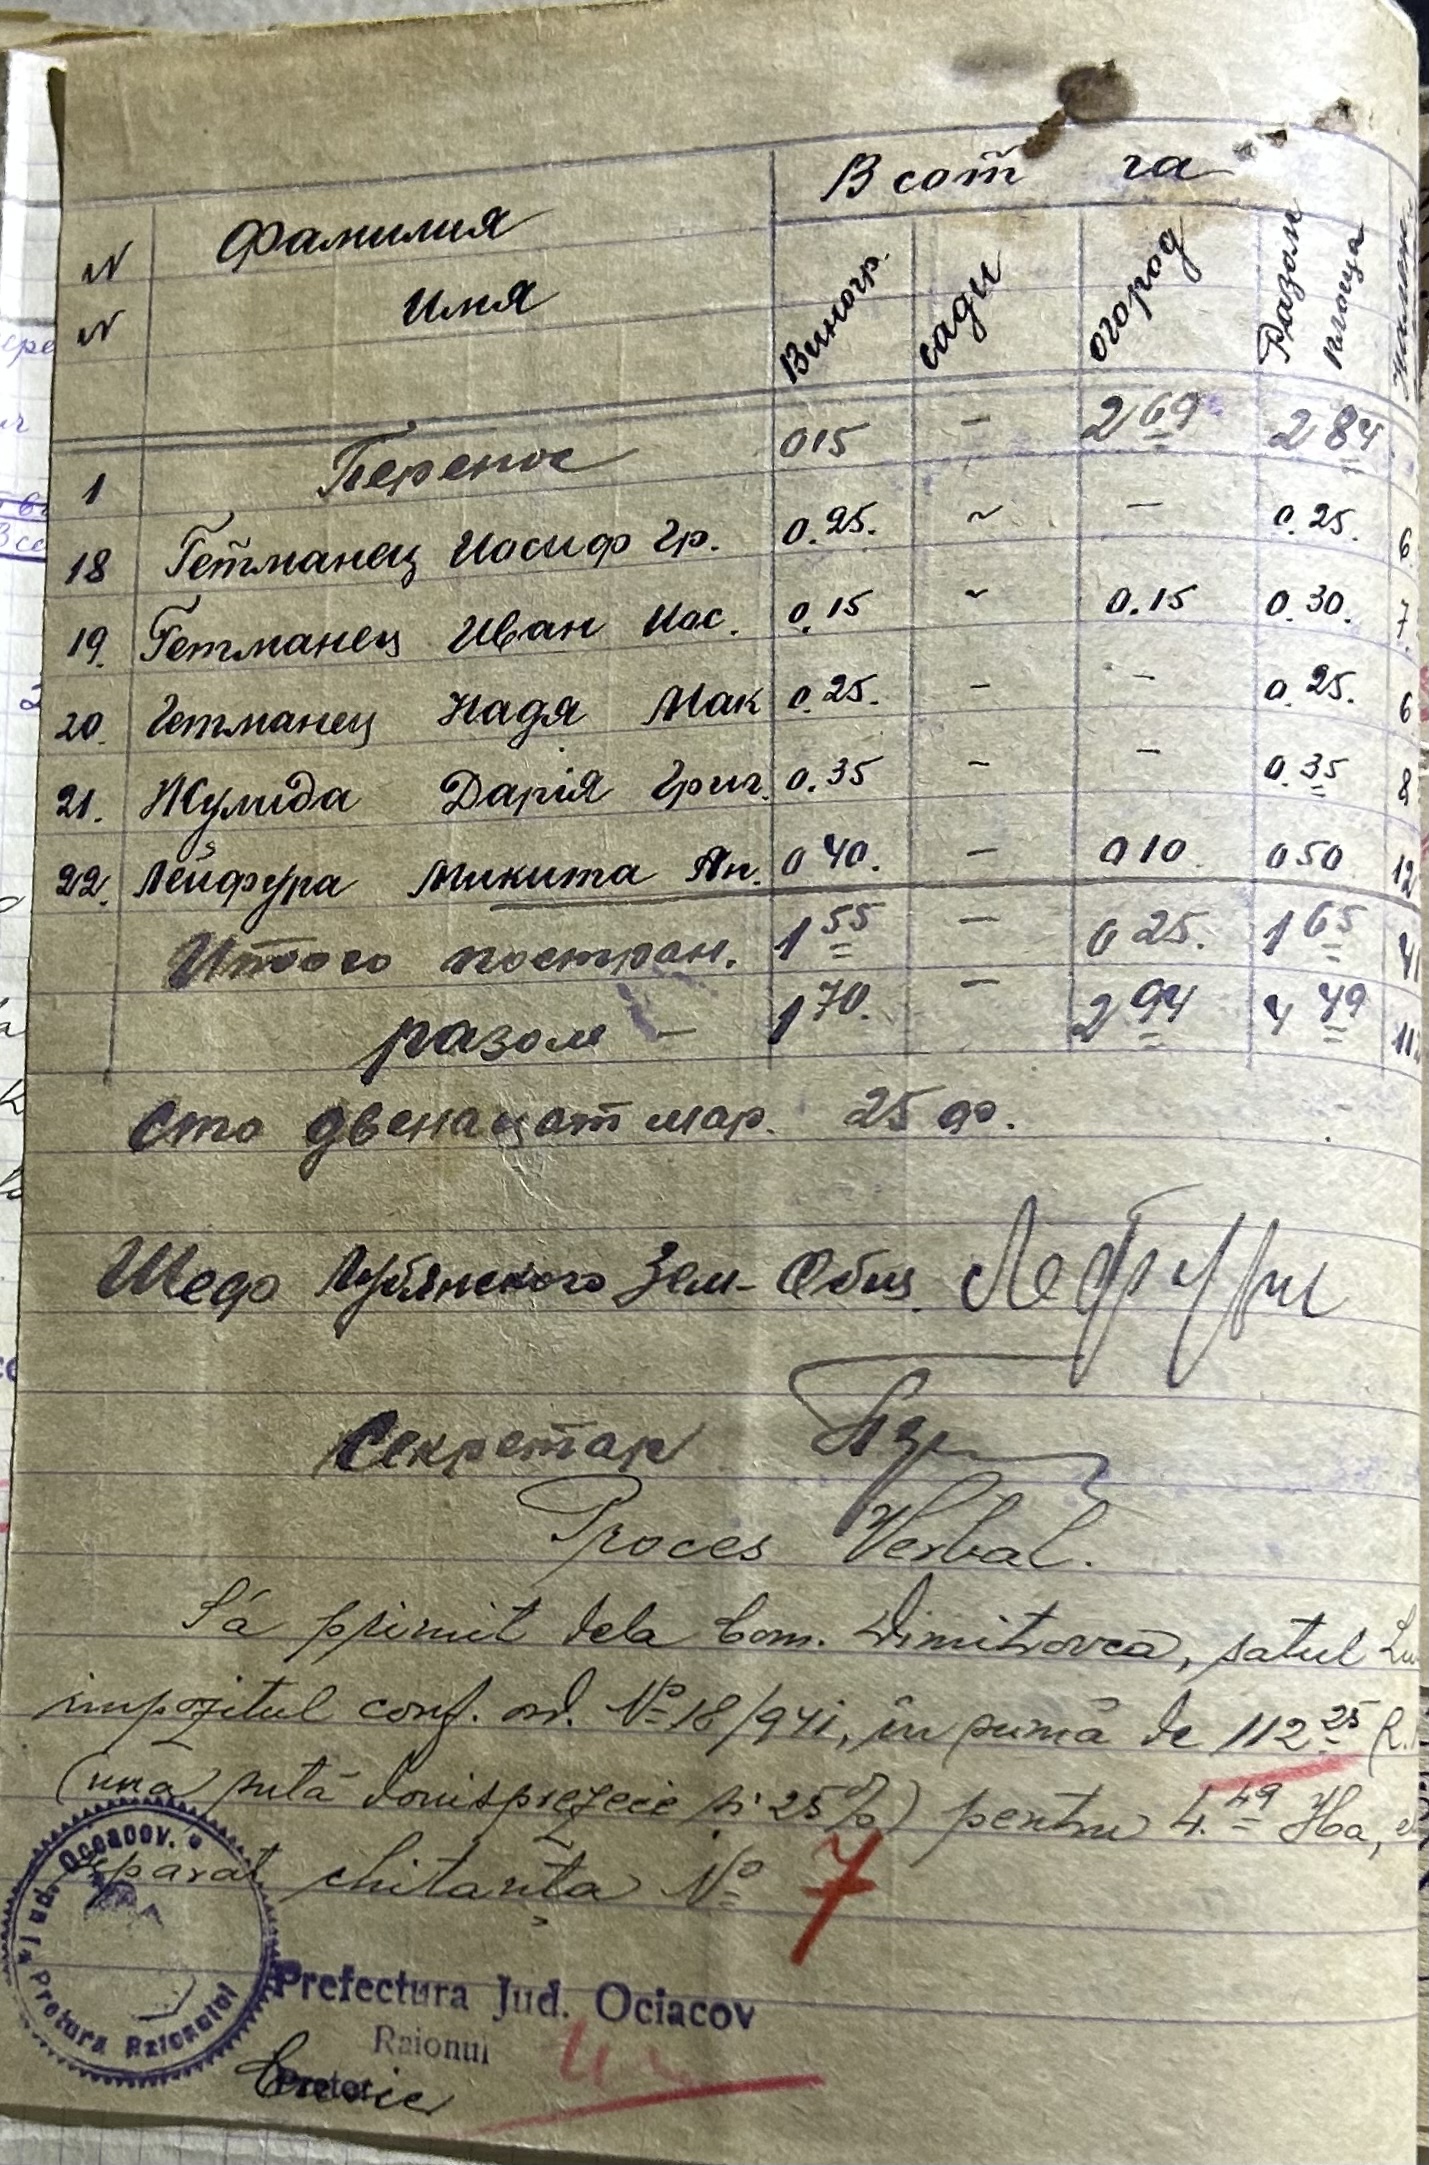 В сот га
N N Фамилия Имя Виногр. сади огород Разом площа
1 Перенос 015 - 2 69 2 84
18 Гетманец Иосиф Гр. 0.25. ~ - 0.25. 6
19. Гетманец Иван Иос. 0.15 ~ 0.15 0.30. 7
20. Гетманец Надя Мак 0.25. - - 0.25. 6
21. Жулида Дарія Григ. 0.35 - - 0.35 8
22. Лейфура Микита Ан. 0 40. - 010 050 12
Итого по стран. 1 55 - 0 25. 1 65 41
разом - 1 70. - 2 94 4 49 11
сто двенацат мар. 25 ф.
Шеф Лубянского Зем- Общ.
Секретар
Proces Verbal.
S'a primit dela Com. Dimitrovca, satul Lu
impozitul conf. ord. No 18/941, în sumă de 112 25
(una sută douisprezece și 25%) pentru 4.49 Ha,
separat chitanța No 7
Jud. Ociacov.
Pretura Raionului
Prefectura Jud. Ociacov
Raionul
Pretor